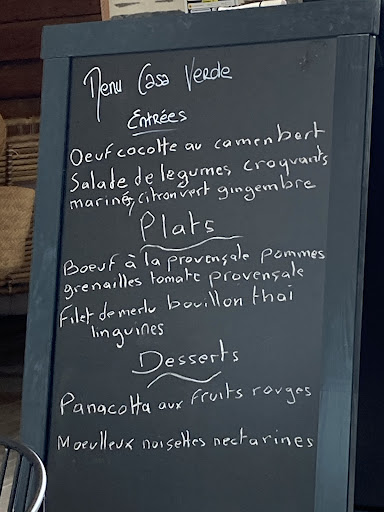 Menu Casa Verde
Entrées
Oeuf cocotte au camenbert
Salade de legumes croquants
marinés, citron vert gingembre
Plats
Boeuf à la provençale pommes
grenailles tomate provençale
Filet de merlu bouillon thai
linguines
Desserts
Panacotta aux fruits rouges
Moeulleux noisettes nectarines